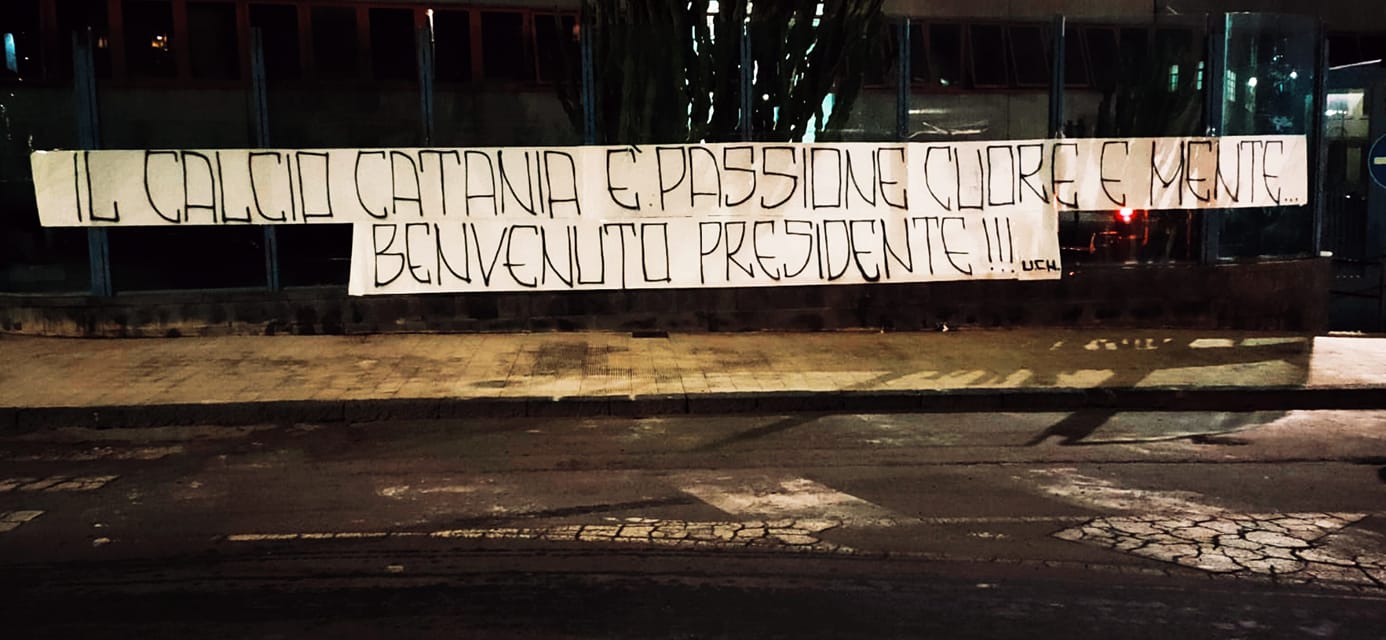 IL CALCIO CATANIA È PASSIONE CUORE E MENTE...
BENVENUTO PRESIDENTE!!! U.C.N.